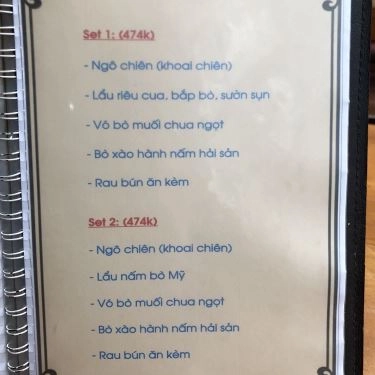 Set 1: (474k)
- Ngô chiên (khoai chiên)
- Lẩu riêu cua, bắp bò, sườn sụn
- Vó bò muối chua ngọt
- Bò xào hành nấm hải sản
- Rau bún ăn kèm
Set 2: (474k)
- Ngô chiên (khoai chiên)
- Lẩu nấm bò Mỹ
- Vó bò muối chua ngọt
- Bò xào hành nấm hải sản
- Rau bún ăn kèm